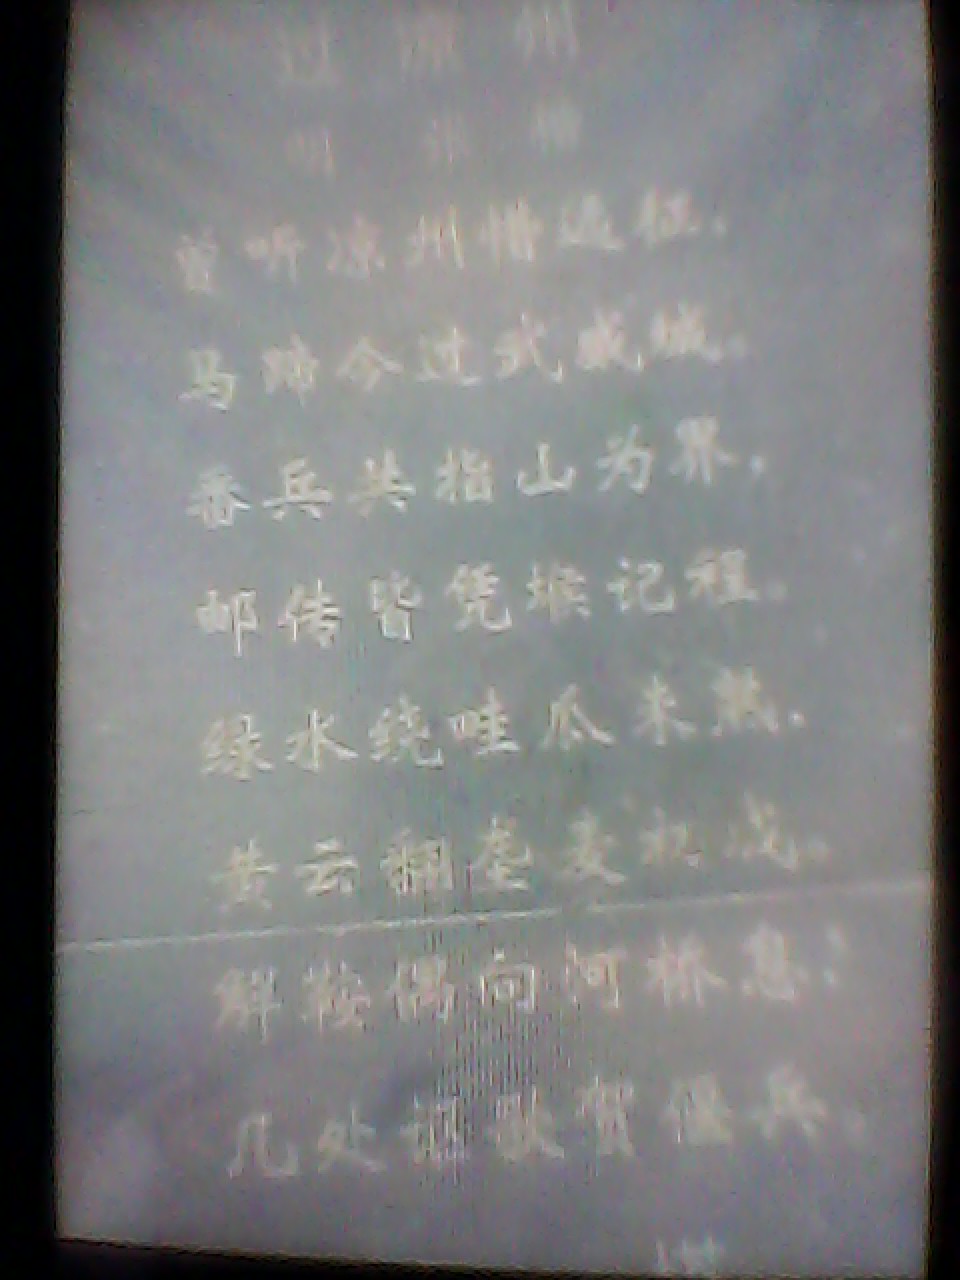 过凉州
曾听凉州惜远征，
马蹄今过武威城。
番兵共指山为界，
邮传皆凭堠记程。
绿水绕畦瓜未熟，
黄云翻垄麦初成。
解鞍偶向河桥息，
几处讴歌贺偃兵。